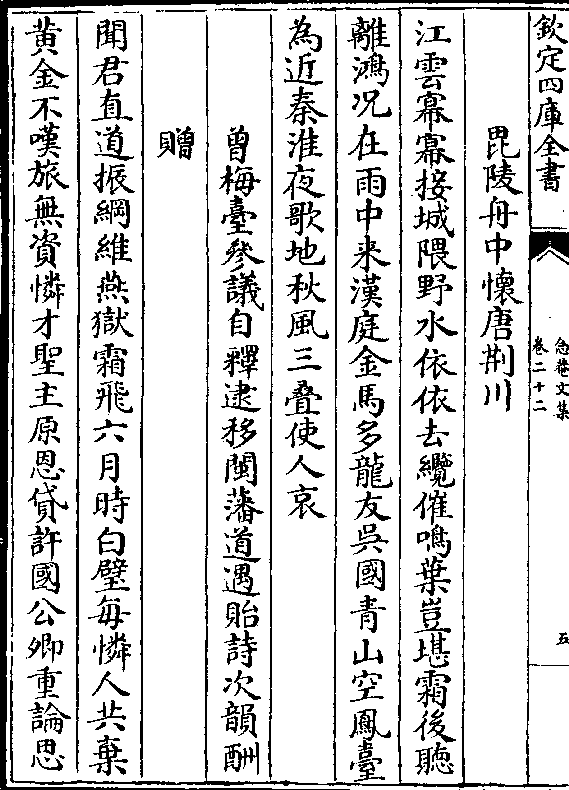 欽定四庫全書
念菴文集
卷二十二
五
毘陵舟中懷唐荆川
江雲幂幂接城隈野水依依去纜催鳴葉豈堪霜後聽
離鴻况在雨中来漢庭金馬多龍友吳國青山空鳳臺
為近秦淮夜歌地秋風三叠使人哀
曾梅臺叅議自釋逮移閩藩道遇貽詩次韻酬
贈
聞君直道振綱維燕獄霜飛六月時白璧每憐人共棄
黄金不嘆旅無資憐才聖主原恩貸許國公卿重論思